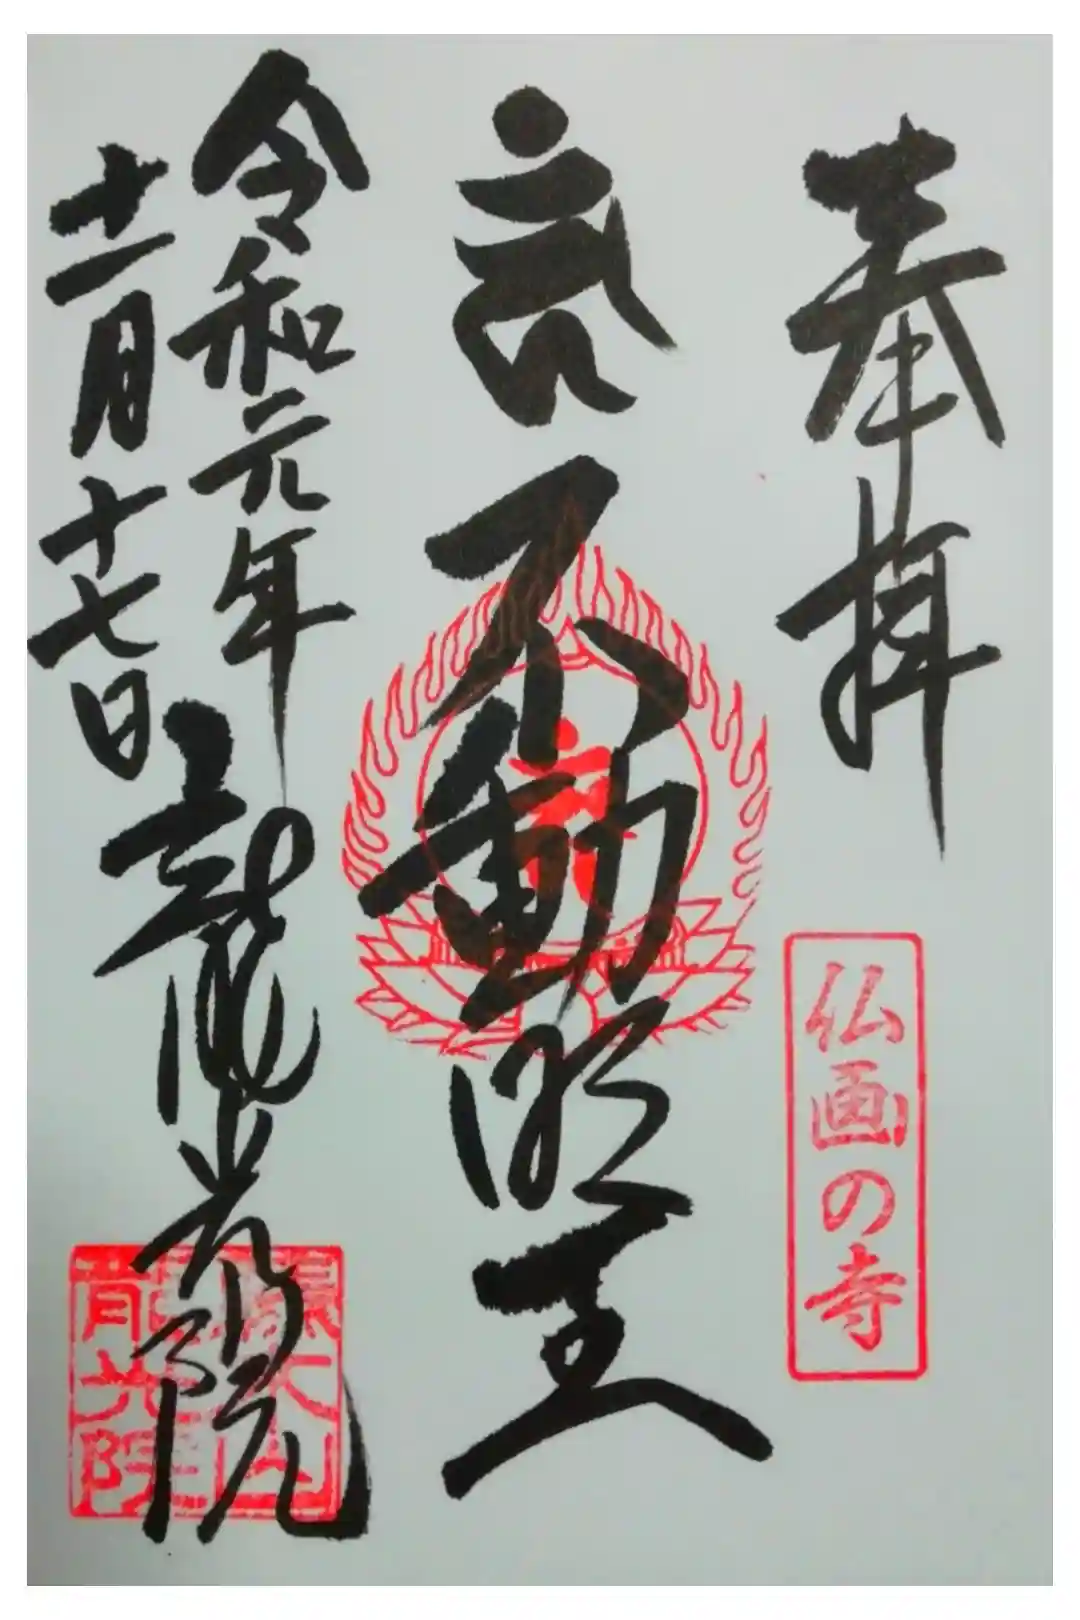 奉拝
仏画の寺
不動明王
令和元年
十一月十七日
龍光院
龍光院